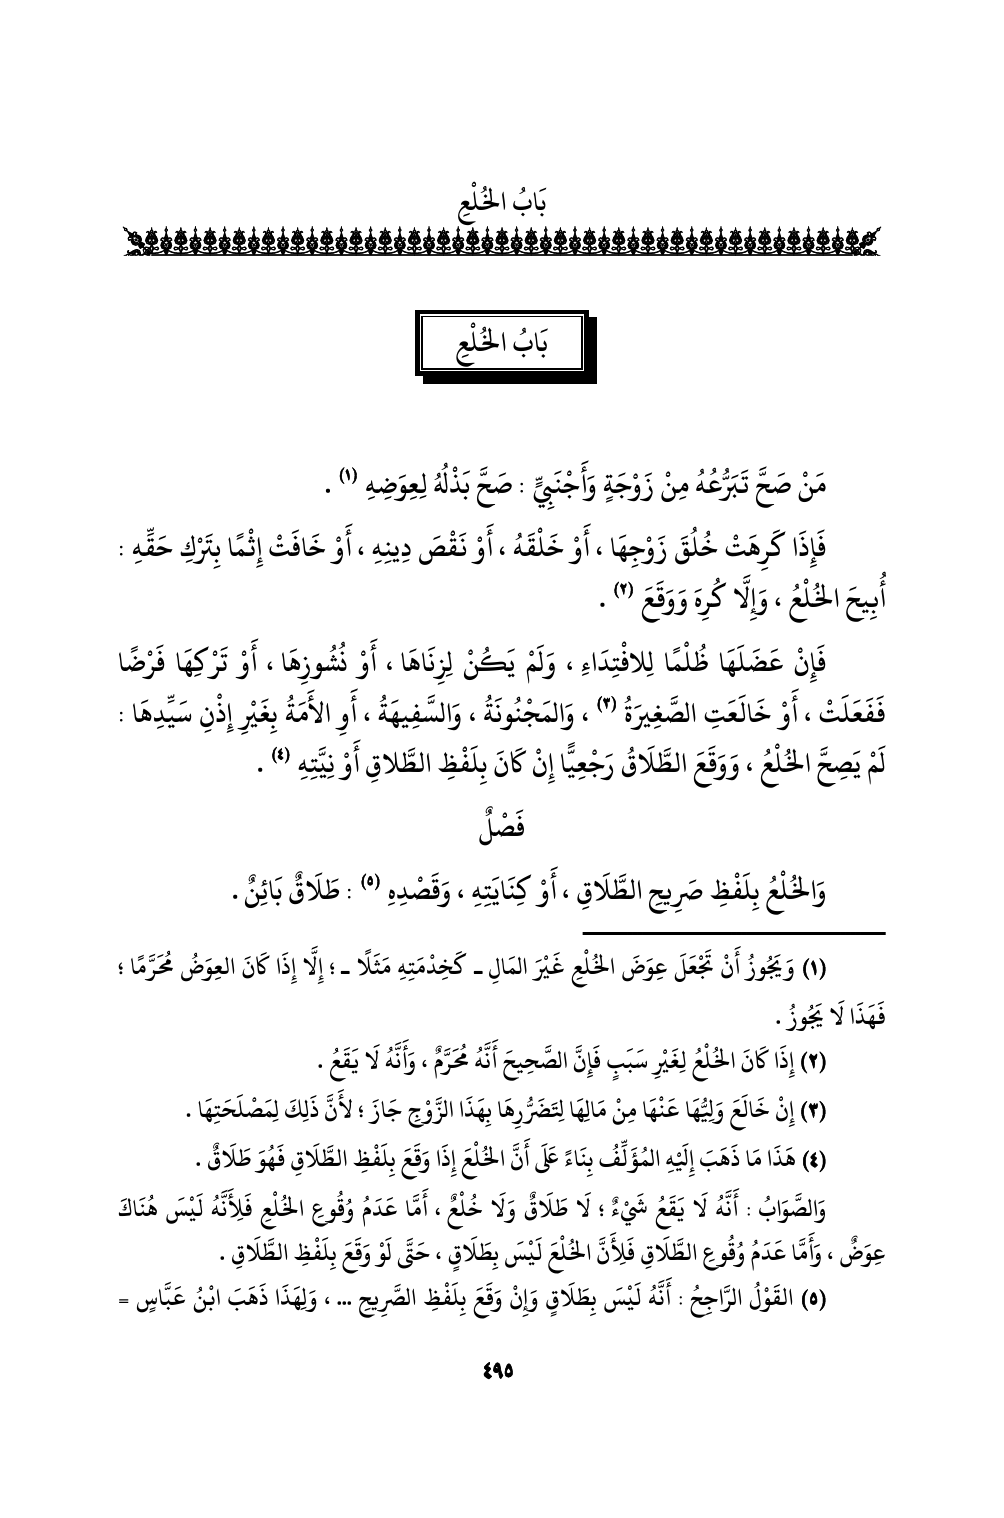 بَابُ الخُلْعِ
بَابُ الخُلْعِ
مَنْ صَحَّ تَبَرُّعُهُ مِنْ زَوْجَةٍ وَأَجْنَبِيٍّ : صَحَّ بَذْلُهُ لِعِوَضِهِ (١) .
فَإِذَا كَرِهَتْ خُلُقَ زَوْجِهَا ، أَوْ خَلْقَهُ ، أَوْ نَقْصَ دِينِهِ ، أَوْ خَافَتْ إِثْمًا بِتَرْكِ حَقِّهِ :
أُبِيحَ الخُلْعُ ، وَإِلَّا كُرِهَ وَوَقَعَ (٢) .
فَإِنْ عَضَلَهَا ظُلْمًا لِلافْتِدَاءِ ، وَلَمْ يَكُنْ لِزِنَاهَا ، أَوْ نُشُوزِهَا ، أَوْ تَرْكِهَا فَرْضًا
فَفَعَلَتْ ، أَوْ خَالَعَتِ الصَّغِيرَةُ (٣) ، وَالمَجْنُونَةُ ، وَالسَّفِيهَةُ ، أَوِ الأَمَةُ بِغَيْرِ إِذْنِ سَيِّدِهَا :
لَمْ يَصِحَّ الخُلْعُ ، وَوَقَعَ الطَّلَاقُ رَجْعِيًّا إِنْ كَانَ بِلَفْظِ الطَّلاقِ أَوْ نِيَّتِهِ (٤) .
فَصْلٌ
وَالخُلْعُ بِلَفْظِ صَرِيحِ الطَّلَاقِ ، أَوْ كِنَايَتِهِ ، وَقَصْدِهِ (٥) : طَلَاقٌ بَائِنٌ .
(١) وَيَجُوزُ أَنْ تَجْعَلَ عِوَضَ الخُلْعِ غَيْرَ المَالِ ـ كَخِدْمَتِهِ مَثَلًا ـ ؛ إِلَّا إِذَا كَانَ العِوَضُ مُحَرَّمًا ؛
فَهَذَا لَا يَجُوزُ .
(٢) إِذَا كَانَ الخُلْعُ لِغَيْرِ سَبَبٍ فَإِنَّ الصَّحِيحَ أَنَّهُ مُحَرَّمٌ ، وَأَنَّهُ لَا يَقَعُ .
(٣) إِنْ خَالَعَ وَلِيُّهَا عَنْهَا مِنْ مَالِهَا لِتَضَرُّرِهَا بِهَذَا الزَّوْجِ جَازَ ؛ لأَنَّ ذَلِكَ لِمَصْلَحَتِهَا .
(٤) هَذَا مَا ذَهَبَ إِلَيْهِ المُؤَلِّفُ بِنَاءً عَلَى أَنَّ الخُلْعَ إِذَا وَقَعَ بِلَفْظِ الطَّلَاقِ فَهُوَ طَلَاقٌ .
وَالصَّوَابُ : أَنَّهُ لَا يَقَعُ شَيْءٌ ؛ لَا طَلَاقٌ وَلَا خُلْعٌ ، أَمَّا عَدَمُ وُقُوعِ الخُلْعِ فَلِأَنَّهُ لَيْسَ هُنَاكَ
عِوَضٌ ، وَأَمَّا عَدَمُ وُقُوعِ الطَّلَاقِ فَلِأَنَّ الخُلْعَ لَيْسَ بِطَلَاقٍ ، حَتَّى لَوْ وَقَعَ بِلَفْظِ الطَّلَاقِ .
(٥) القَوْلُ الرَّاجِحُ : أَنَّهُ لَيْسَ بِطَلَاقٍ وَإِنْ وَقَعَ بِلَفْظِ الصَّرِيحِ ... ، وَلِهَذَا ذَهَبَ ابْنُ عَبَّاسٍ =
٤٩٥